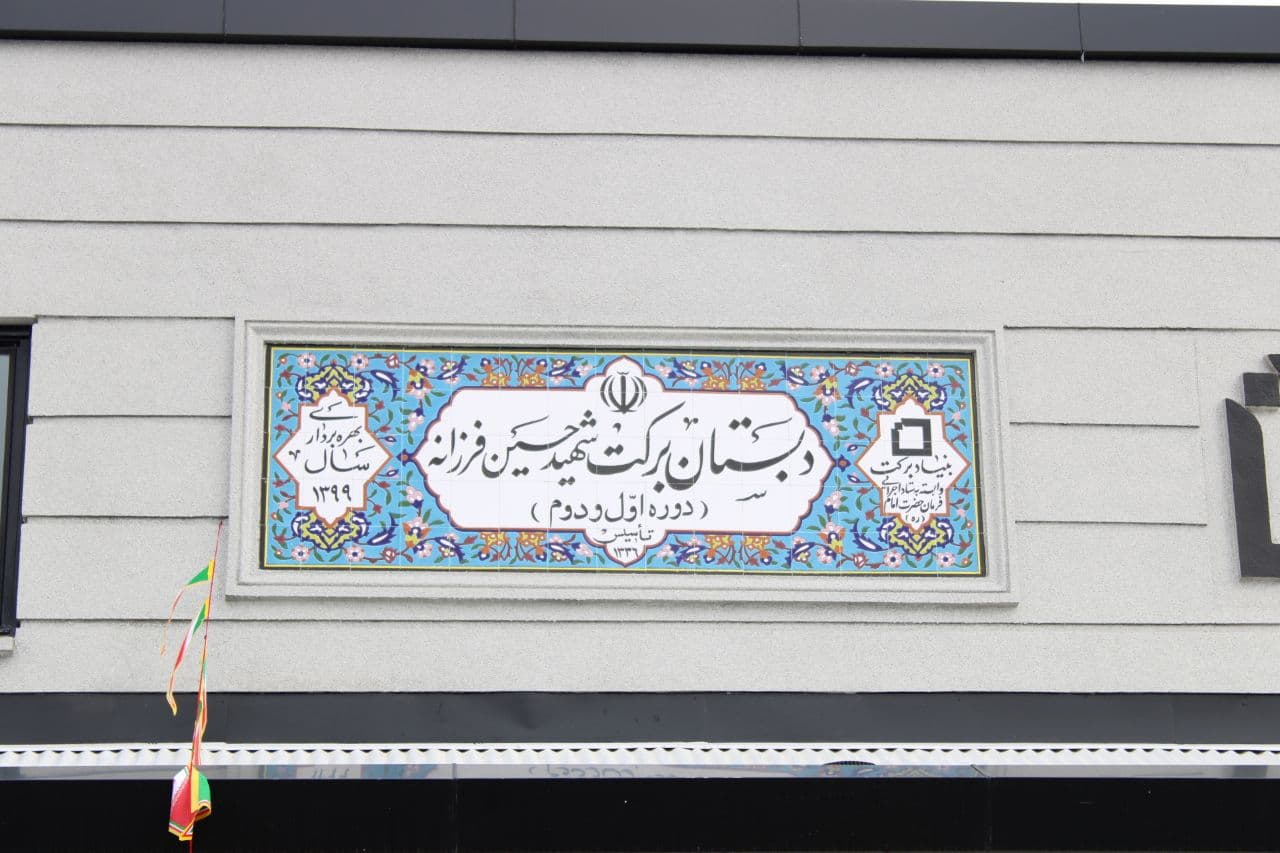 بنیاد برکت
وابسته به ستاد اجرایی
فرمان حضرت امام
(ره)
دبستان برکت شهید حسین فرزانه
(دوره اوّل و دوم)
تأسیس
۱۳۳۶
بهره برداری
سال
۱۳۹۹